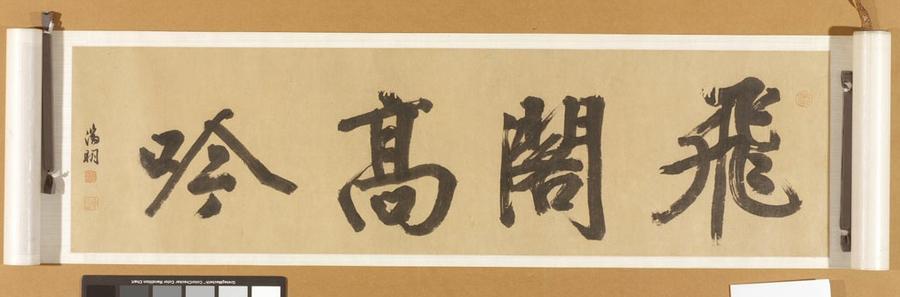 飛閣髙吟
徵明
GretagMacbeth™ ColorChecker Color Rendition Chart